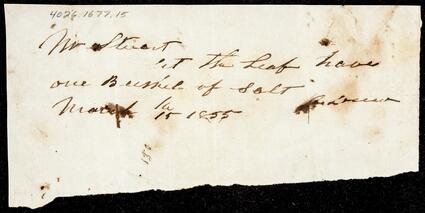 4026.1677.15
Mr Stuart
let the Leaf have
one Bushel of Salt
March 15th 1855